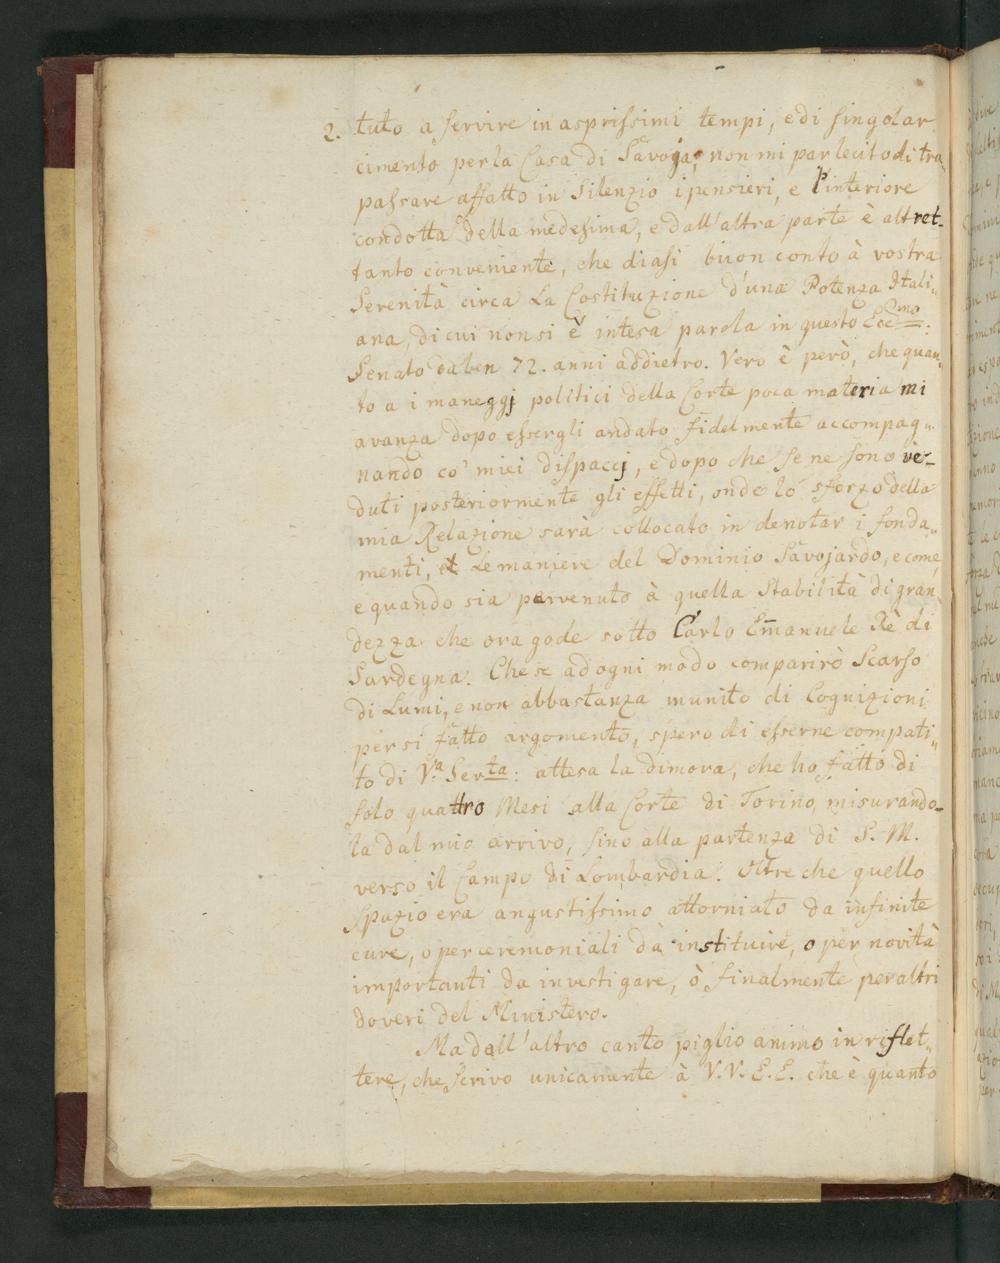 2. tuto a servire in asprissimi tempi, e di singolar
cimento per la Casa di Savoja; non mi par lecito di tra„
passare affatto in silenzio i pensieri, e l'interiore
condotta della medesima, e dall'altra parte è altret-
tanto conveniente, che diasi buon conto à vostra
Serenità circa La Costituzione d'una Potenza Itali„
ana, di cui non si è intesa parola in questo Ecc.mo:
Senato da ben 72. anni addietro. Vero è però, che quan„
to a i maneggj politici della Corte poca materia mi
avanza dopo essergli andato fidelmente accompag„
nando co' miei dispaccj, e dopo che se ne sono ve-
duti posteriormente gli effetti, onde lo sforzo della
mia Relazione sarà collocato in denotar i fonda„
menti, et Le maniere del Dominio Savojardo, e come,
e quando sia pervenuto à quella Stabilità di gran„
dezza che ora gode sotto Carlo Emanuele Rè di
Sardegna. Che se ad ogni modo comparirò Scarso
di Lumi, e non abbastanza munito di Cognizioni
per si fatto argomento, spero di esserne compati„
to di V.a Ser.ta: attesa la dimora, che ho fatto di
solo quattro Mesi alla Corte di Torino, misurando-
la dal mio arrivo, sino alla partenza di S. M.
verso il Campo di Lombardia. Oltre che quello
Spazio era angustissimo attorniato da infinite
cure, o per ceremoniali da instituire, o per novità
importanti da investigare, ò finalmente per altri
doveri del Ministero.
Ma dall'altro canto piglio animo in riflet„
tere, che scrivo unicamente à V.V. E.E. che è quanto